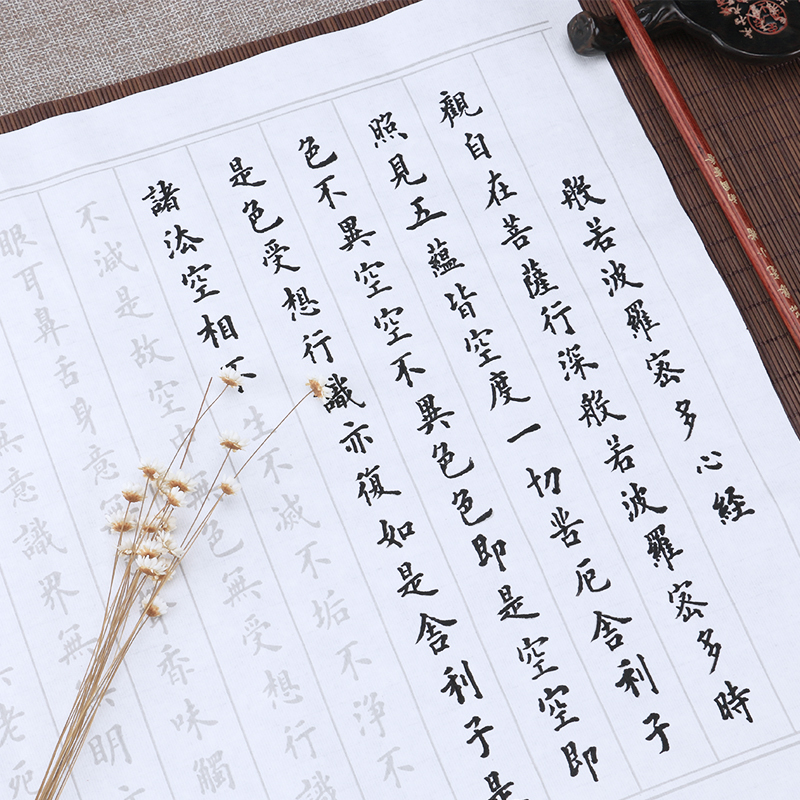 般若波羅密多心経
觀自在菩薩行深般若波羅密多時
照見五蘊皆空度一切苦厄舍利子
色不異空空不異色色即是空空即
是色受想行識亦復如是舍利子是
諸法空相不生不滅不垢不淨不
不減是故空中無色無受想行識
眼耳鼻舌身意無香味觸
無意識界無無明
老死